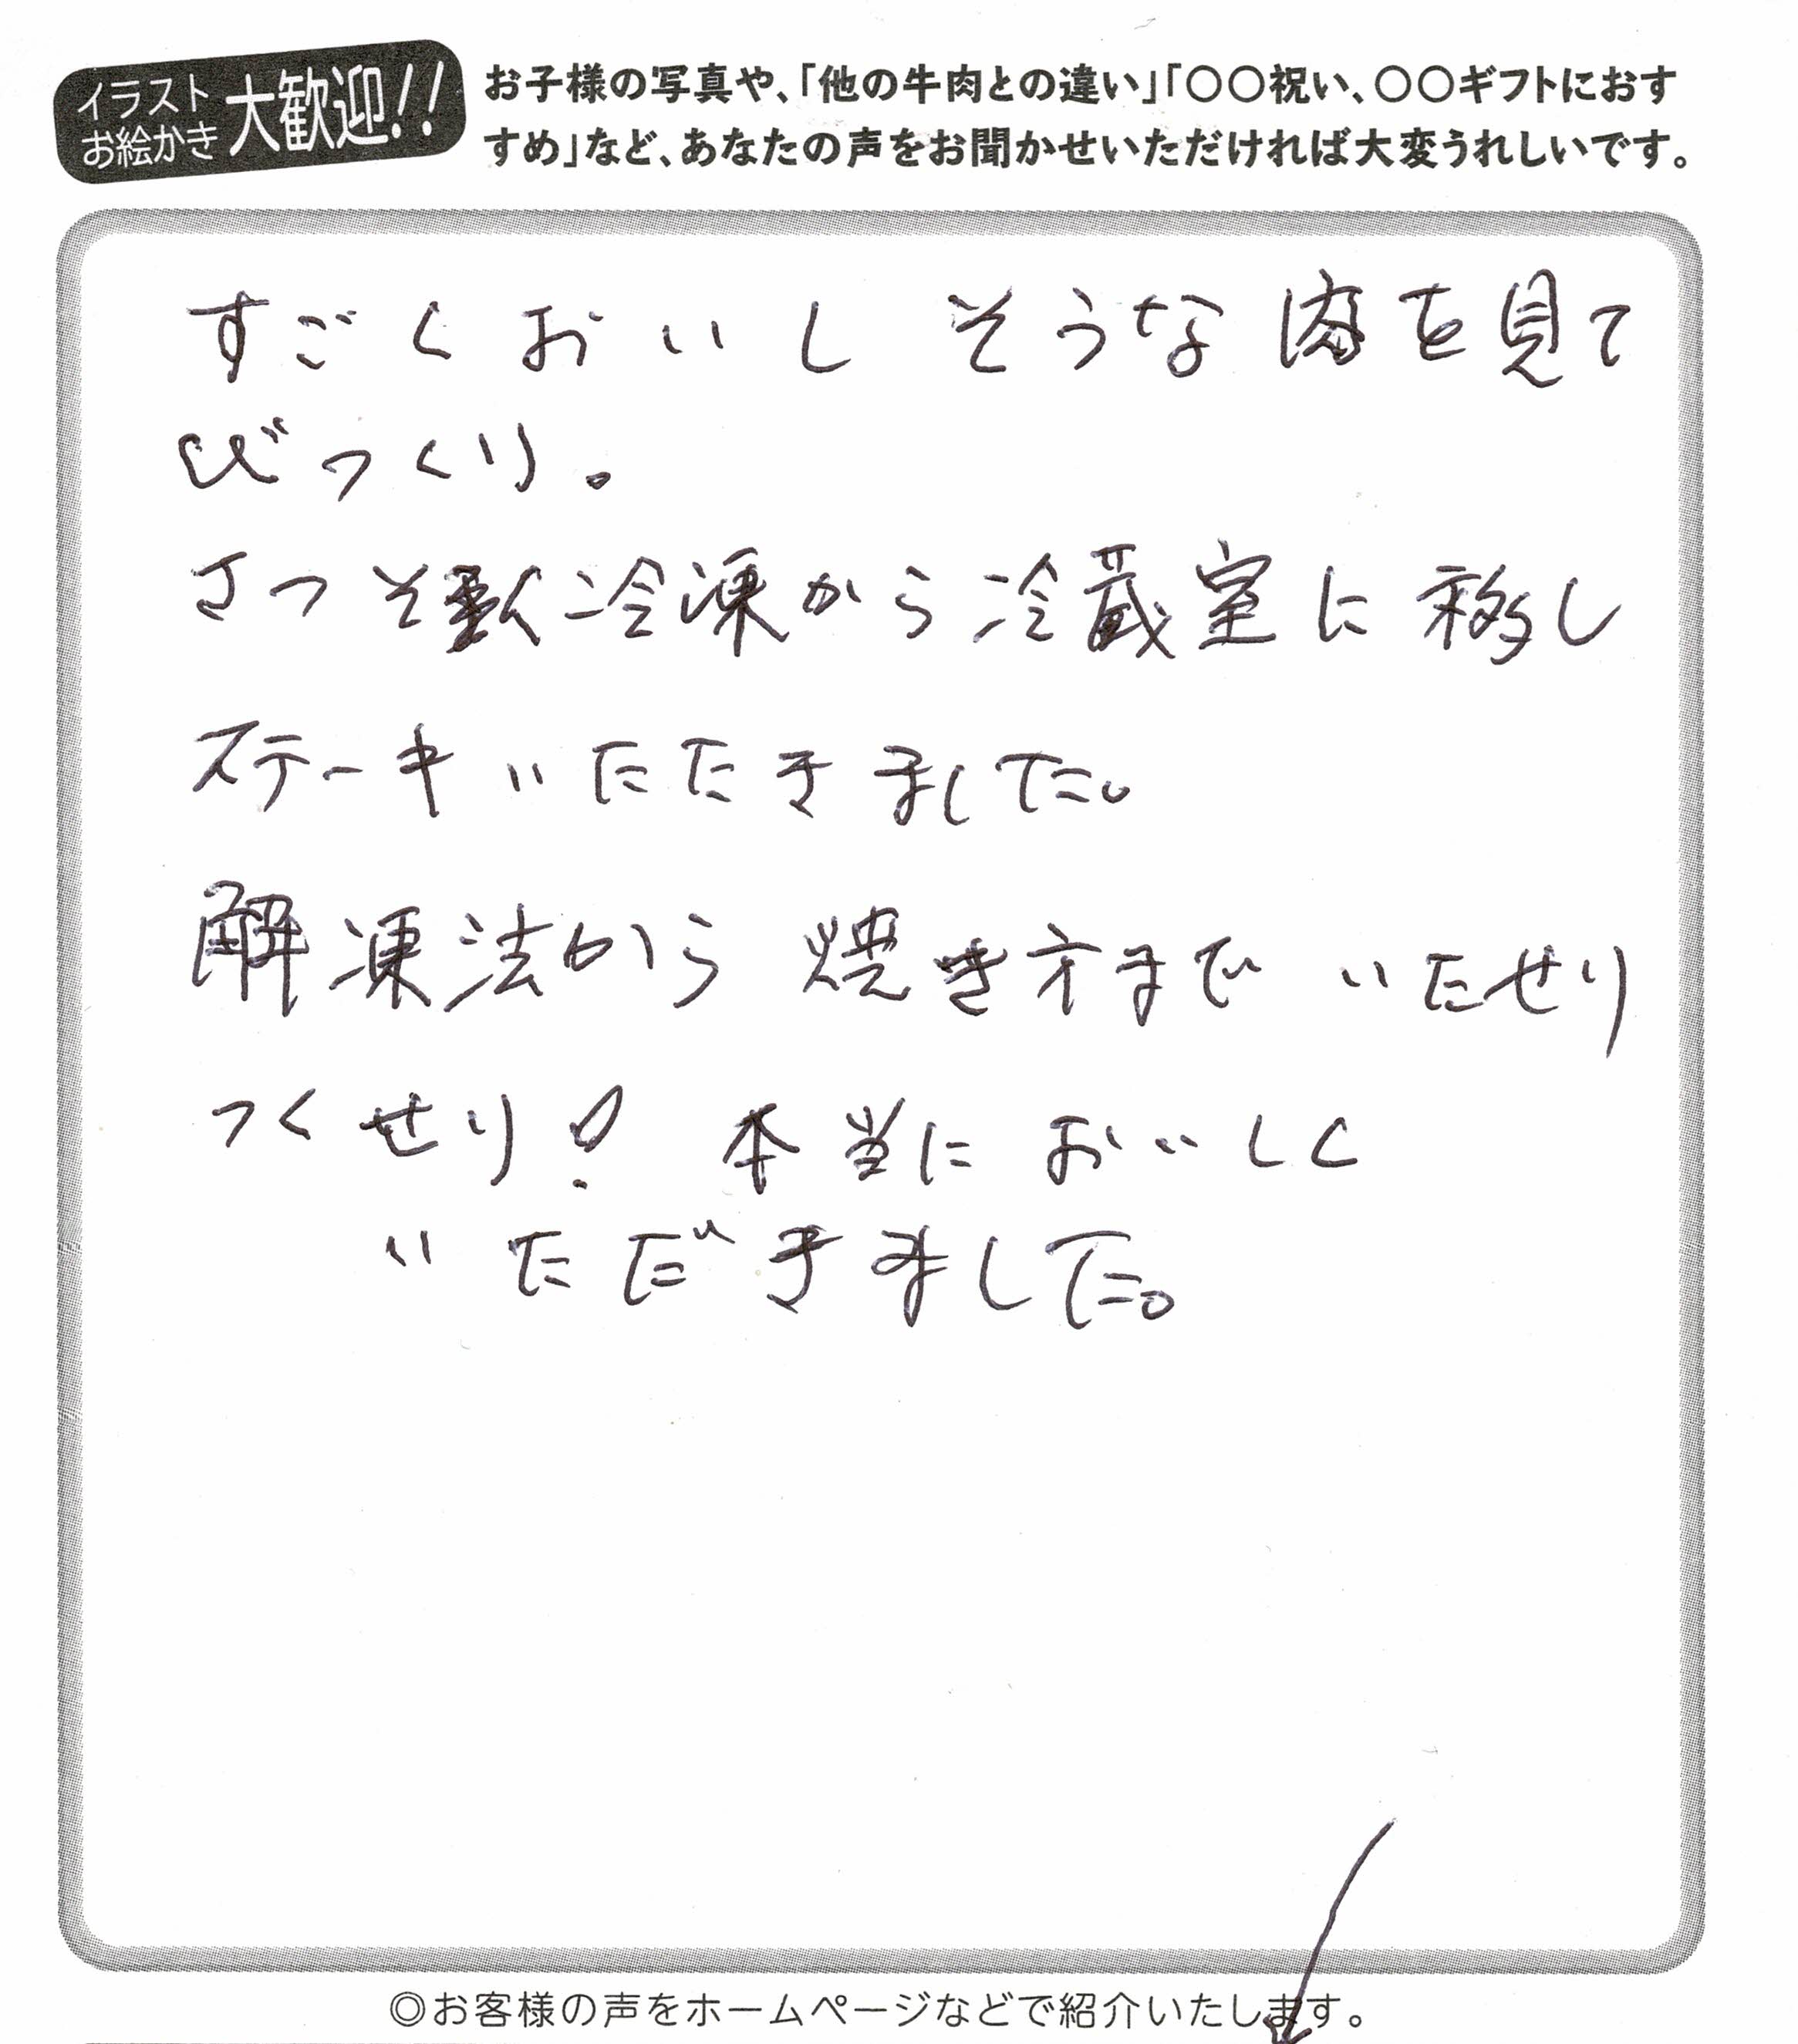 イラスト
お絵かき
大歓迎!!
お子様の写真や、「他の牛肉との違い」「○○祝い、○○ギフトにおす
すめ」など、あなたの声をお聞かせいただければ大変うれしいです。
すごくおいしそうな肉を見て
びっくり。
さっそく冷凍から冷蔵室に移し
ステーキいたたきました。
解凍法から焼き方まで いたせり
つくせり! 本当においしく
いただきました。
◎お客様の声をホームページなどで紹介いたします。